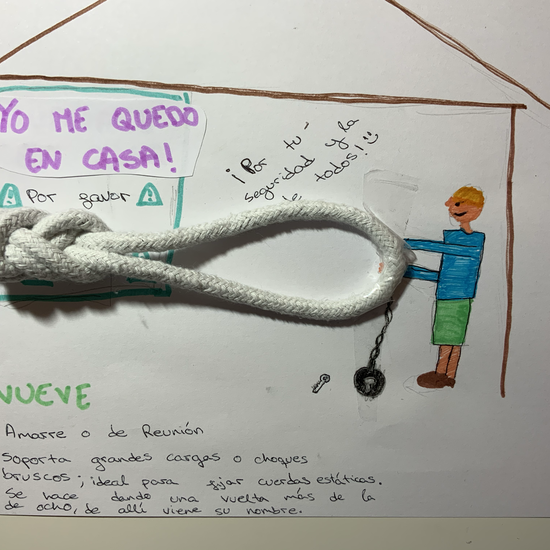 YO ME QUEDO
EN CASA!
Por favor
¡Por tu
seguridad y la
de todos!
NUEVE
Amarre o de Reunión
Soporta grandes cargas o choques
bruscos; ideal para fijar cuerdas estáticas.
Se hace dando una vuelta más de la
de ocho, de allí viene su nombre.